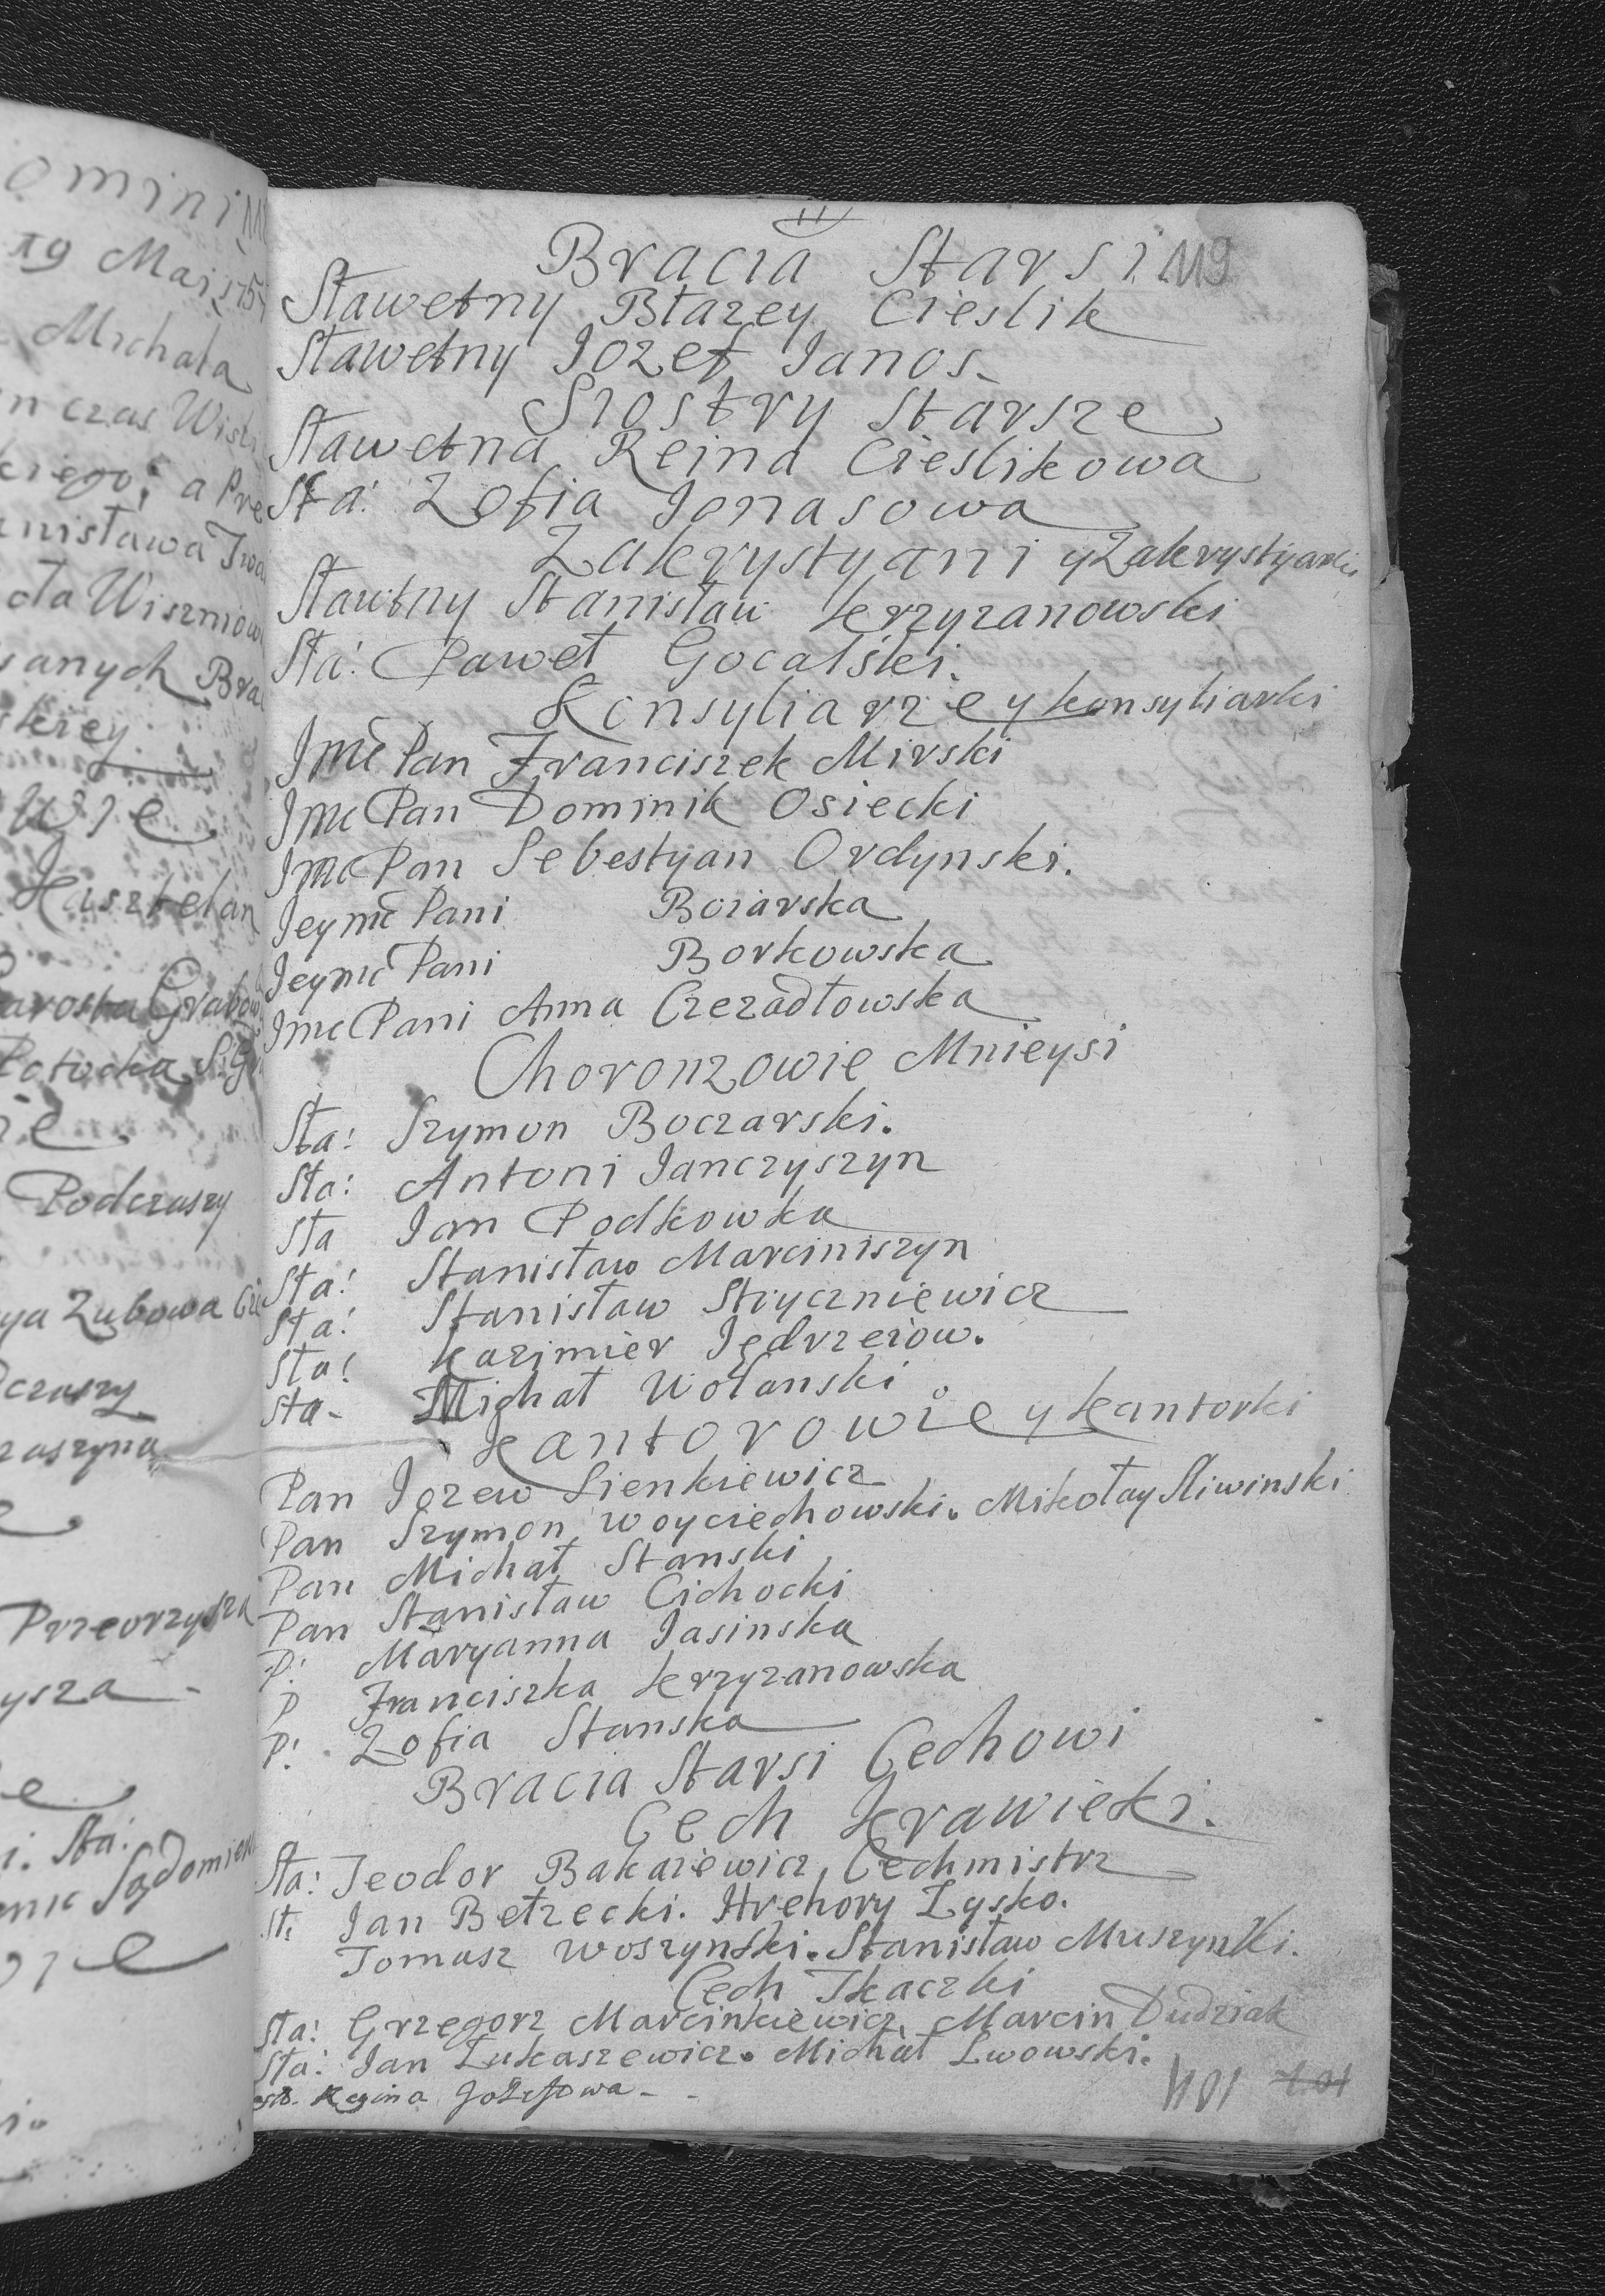 omini
19 Maij 175
Michała
n czas
kiego; a
nisława
ła Wiszniow
sanych Bra
skiey
Kasztelan
Potocka
Podczaszy
ya Zubowa
czaszy
Przeorzysza
ysza
Bracia Starsi 119
Sławetny Błazey Cieslik
Sławetny Iozef Ianos
Siostry starsze
Sławetna Reina Cieslikowa
Sła: Zofia Ionasowa
Zakrystyani y Zakrystyarki
Sławtny Stanisław krzyzanowski
Sła: Paweł Gocalski.
Konsyliarze y konsyliarki
Jmć Pan Franciszek Mirski
Jmc Pan Dominik Osiecki
Jmc Pan Sebestyan Ordynski.
Jeymć Pani Boiarska
Jeymć Pani Borkowska
Jmc Pani Anna Czezadłowska
Choronzowie Mnieysi
Sła: Szymon Boczarski.
Sła: Antoni Ianczyszyn
Sła Ian Podkowka
Sła: Stanisław Marciniszyn
Sła: Stanisław Stryczniewicz
Sła: kazimier Jędrzeiow.
Sła- Michał Wolanski
Kantorowie y kantorki
Pan Iozew Sienkiewicz
Pan Szymon Woyciechowski. Mikołay Sliwinski
Pan Michał Stanski
Pan Stanisław Cichocki
P: Maryanna Iasinska
P Franciszka krzyzanowska
P: Zofia Stanska
Bracia Starsi Cechowi
Cech krawiecki.
Sła: Teodor Bakaiewicz, Cechmistrz
Sł: Jan Bełzecki. Hrehory Zysko.
Tomasz Woszynski. Stanisław Muszynski.
Cech Tkaczki
Sła: Grzegorz Marcinkiewicz, Marcin Dudziak
Sła: Ian Łukaszewicz. Michał Lwowski.
Regina Jozefowa
101